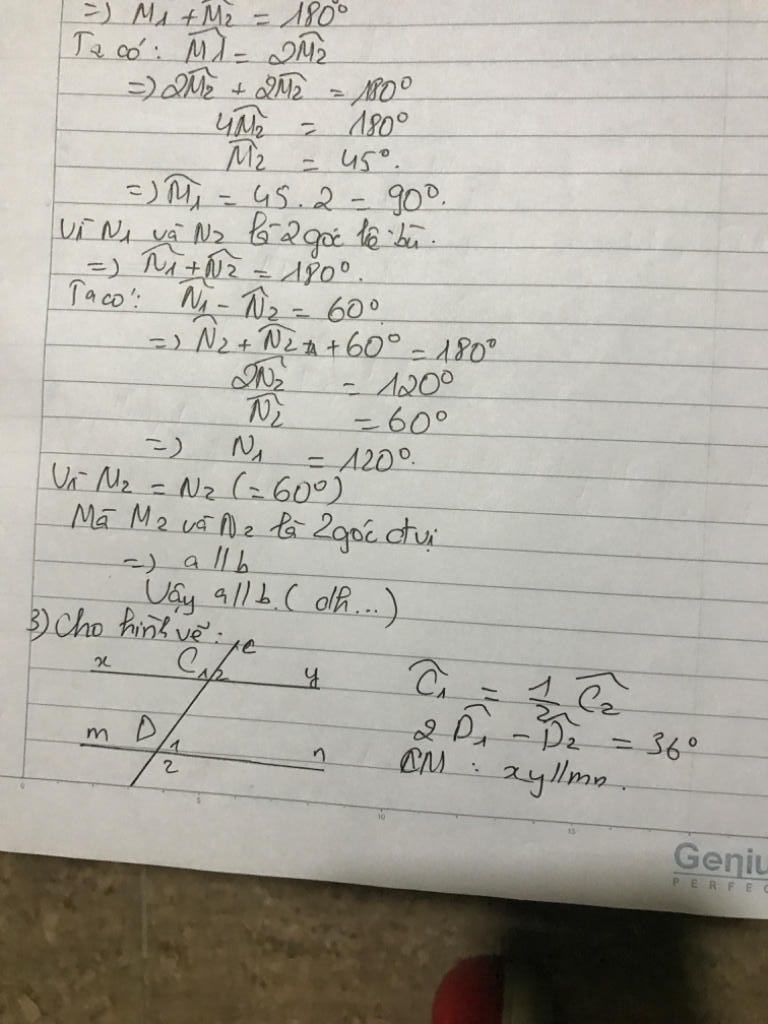 =) M1 + M2 = 180°
Ta có: M1 = 2M2
=) 2M2 + 2M2 = 180°
4M2 = 180°
M2 = 45°.
=) M1 = 45 . 2 = 90°.
Vì N1 và N2 là 2 góc kề bù.
=) N1 + N2 = 180°.
Ta có: N1 - N2 = 60°
=) N2 + N2 + 60° = 180°
2N2 = 120°
N2 = 60°
=) N1 = 120°.
Vì M2 = N2 (= 60°)
Mà M2 và N2 là 2 góc đtvị
=) a // b
Vậy a // b. ( dh...)
3) Cho hình vẽ:
x C 1 2 c y
m D 1 2 n
C1 = 1/2 C2
2 D1 - D2 = 36°
CM : xy // mn.
0 5 10 15
Geniu
PERFEC